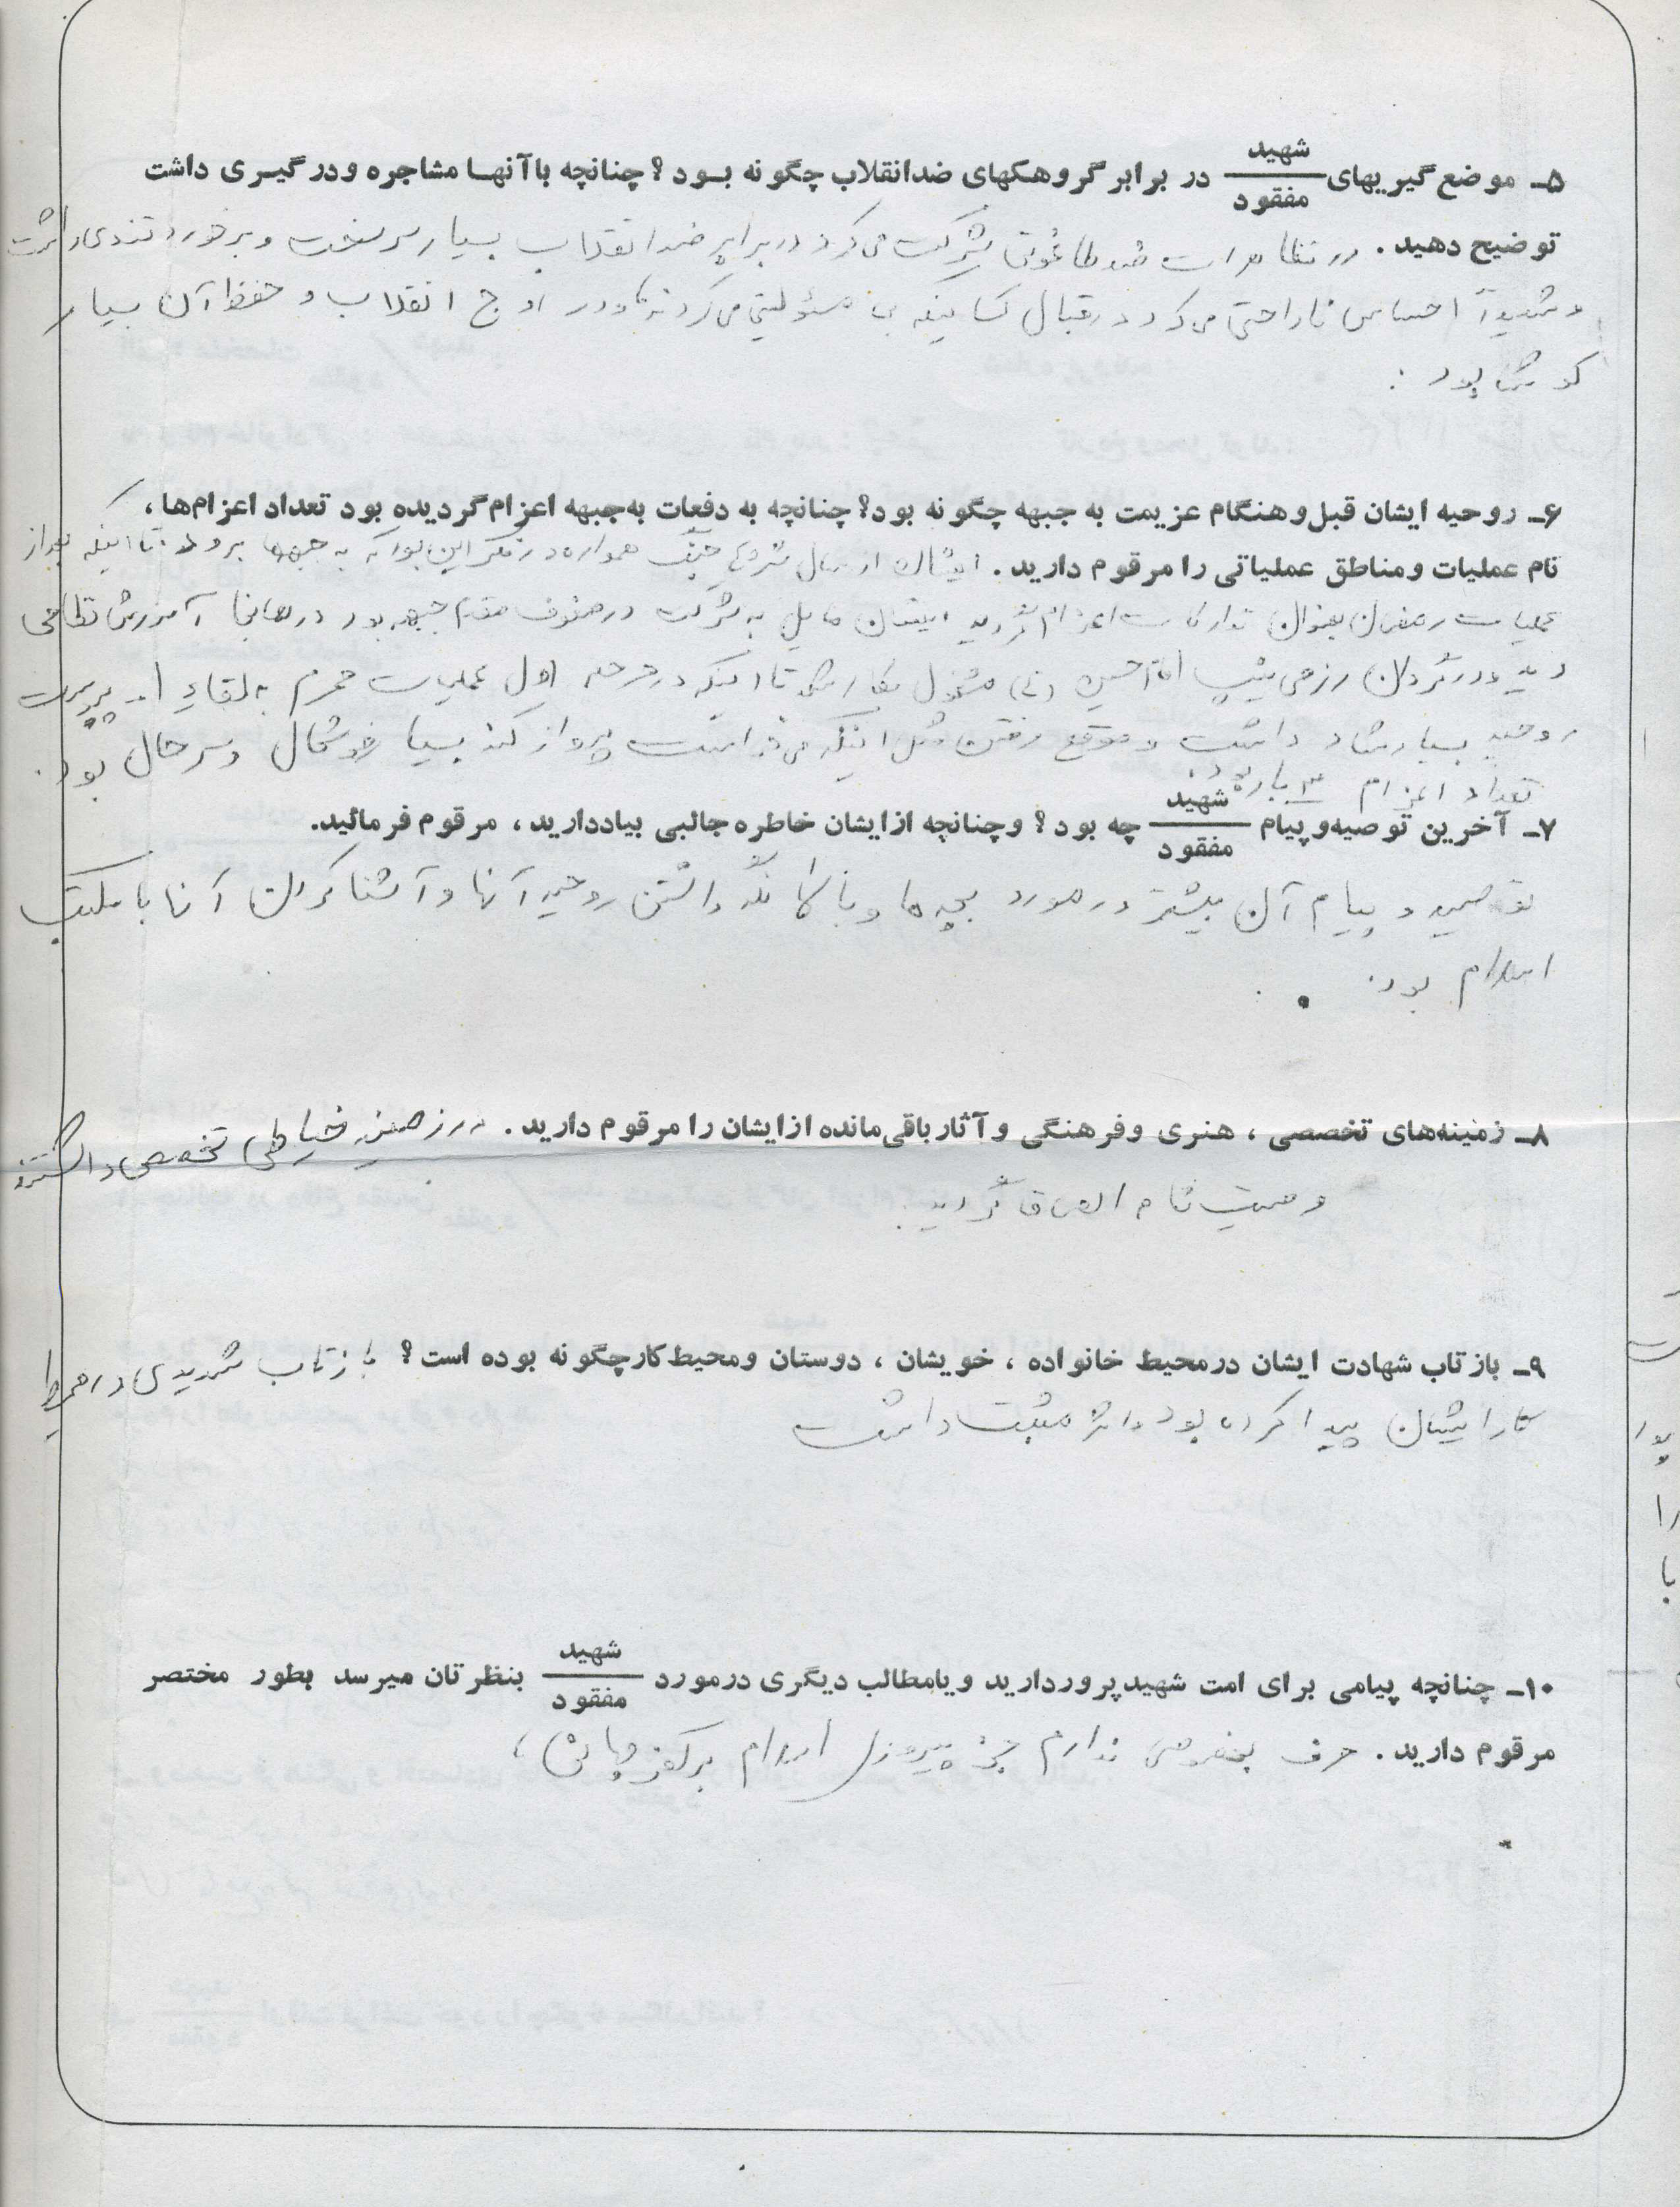 ۵ـ موضع گیریهای شهید / مفقود در برابر گروهکهای ضدانقلاب چگونه بـود ؟ چنانچه باآنهـا مشاجره ودرگیـری داشت
توضیح دهید . در تظاهرات ضد طاغوتی شرکت می کرد در برابر ضد انقلاب بسیار سرسخت و برخورد تندی داشت
و شدیداً احساس ناراحتی می کرد در قبال کسانیکه بی مسئولیتی می کردند و در اوج انقلاب و حفظ آن بسیار
کوشا بود .
۶ـ روحیه ایشان قبل وهنگام عزیمت به جبهه چگونه بود؟ چنانچه به دفعات به جبهه اعزام گردیده بود تعداد اعزام‌ها ،
نام عملیات ومناطق عملیاتی را مرقوم دارید . ایشان از سال شروع جنگ همواره در فکر این بود که به جبهه‌ها برود تا اینکه بعد از
عملیات رمضان بعنوان تدارکات اعزام گردید ایشان مایل به شرکت در صفوف مقدم جبهه بود در همانجا آموزش نظامی
دید و در گردان رزمی تیپ امام حسین (ع) مشغول بکار شد تا اینکه در مرحله اول عملیات محرم به لقاء ا... پیوست
روحیه بسیار شاد داشت و موقع رفتن مثل اینکه می خواست پرواز کند بسیار خوشحال و سرحال بود .
تعداد اعزام ۳ بار بود .
۷ـ آخرین توصیه‌وپیام شهید / مفقود چه بود ؟ وچنانچه ازایشان خاطره جالبی بیاددارید ، مرقوم فرمائید.
توصیه و پیام آن بیشتر در مورد بچه ها و نگه داشتن روحیه آنها و آشنا کردن آنها با مکتب
اسلام بود .
۸ـ زمینه‌های تخصصی ، هنری وفرهنگی وآثار باقی‌مانده ازایشان را مرقوم دارید . در زمینه خیاطی تخصص داشتند
وصیت نامه الصاق گردید .
۹ـ بازتاب شهادت ایشان درمحیط خانواده ، خویشان ، دوستان ومحیط کارچگونه بوده است ؟ بازتاب شدیدی در محیط
کار ایشان پیدا کرده بود و اثر مثبت داشت
۱۰ـ چنانچه پیامی برای امت شهیدپروردارید ویامطالب دیگری درمورد شهید / مفقود بنظرتان میرسد بطور مختصر
مرقوم دارید . حرف بخصوصی ندارم جز پیروزی اسلام بر کفر جهانی ،